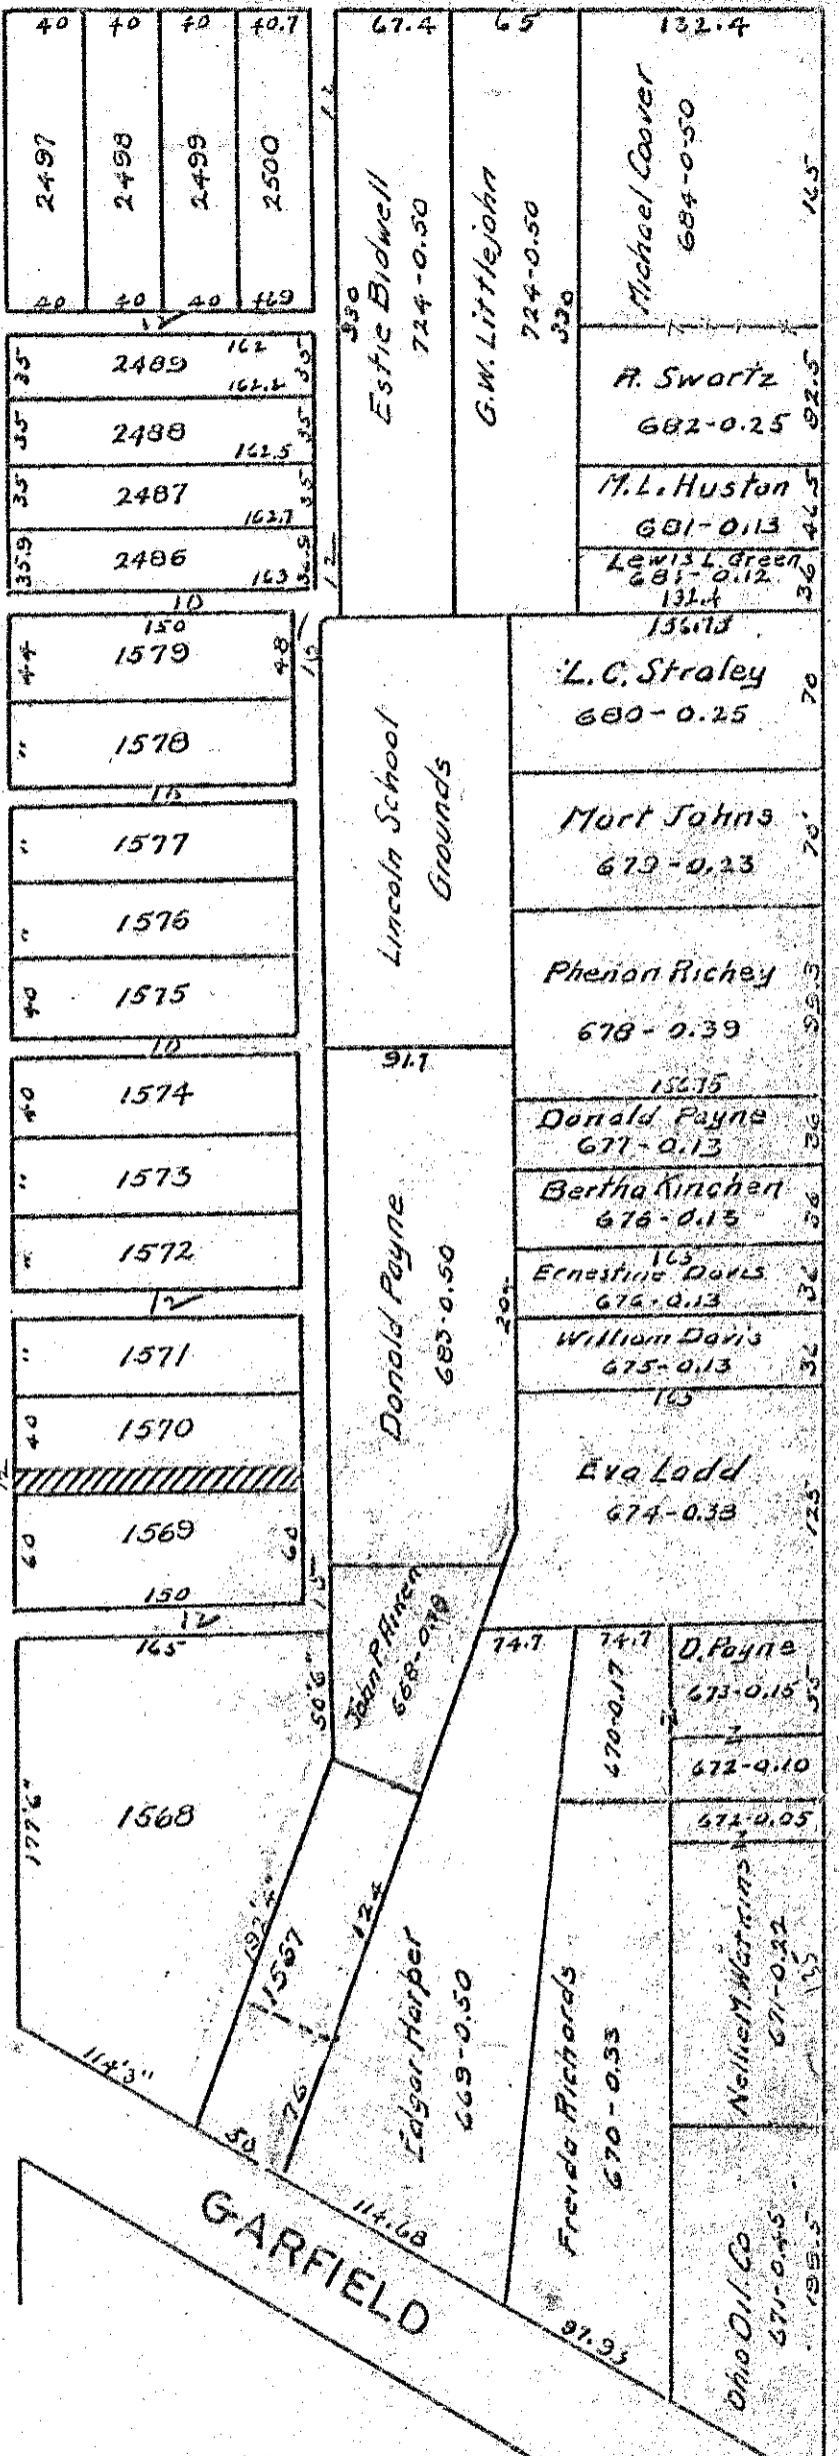 40 40 40 40.7
2497
2498
2499
2500
40 40 40
12
12
35 2489 162 35
162.2
35 2488 35
162.5
35 2487 35
162.7
35.9 2486 163 36.9
12
10
150
44 1579 48
10
" 1578
10
" 1577
" 1576
40 1575
10
40 1574
" 1573
" 1572
12
" 1571
40 1570
12
60 1569 60
150
15
12
165
50'6"
177'6"
1568
114'3"
192'4"
1567
124
76
50
GARFIELD
67.4 65 132.4
330
Estie Bidwell
724-0.50
G.W. Littlejohn
724-0.50
330
Michael Coover
684-0.50
165
A. Swartz
682-0.25
82.5
M.L. Huston
681-0.13
46.5
Lewis L. Green
681-0.12
132.4
36
Lincoln School
Grounds
91.7
Donald Payne
683-0.50
John P Aiken
156.75
L.C. Straley
680-0.25
70
Mort Johns
679-0.23
70'
Phenon Richey
678-0.39
156.75
Donald Payne
677-0.13
36
Bertha Kinchen
676-0.13
36
165
Ernestine Davis
676-0.13
36
William Davis
675-0.13
36
165
Eva Ladd
674-0.33
125
74.7
74.7
670-0.17
D. Payne
673-0.15
55
672-0.10
672-0.05
Nellie M. Watkins
671-0.22
Edgar Harper
669-0.50
114.68
Freida Richards
670-0.33
97.93
Ohio Oil Co
671-0.45